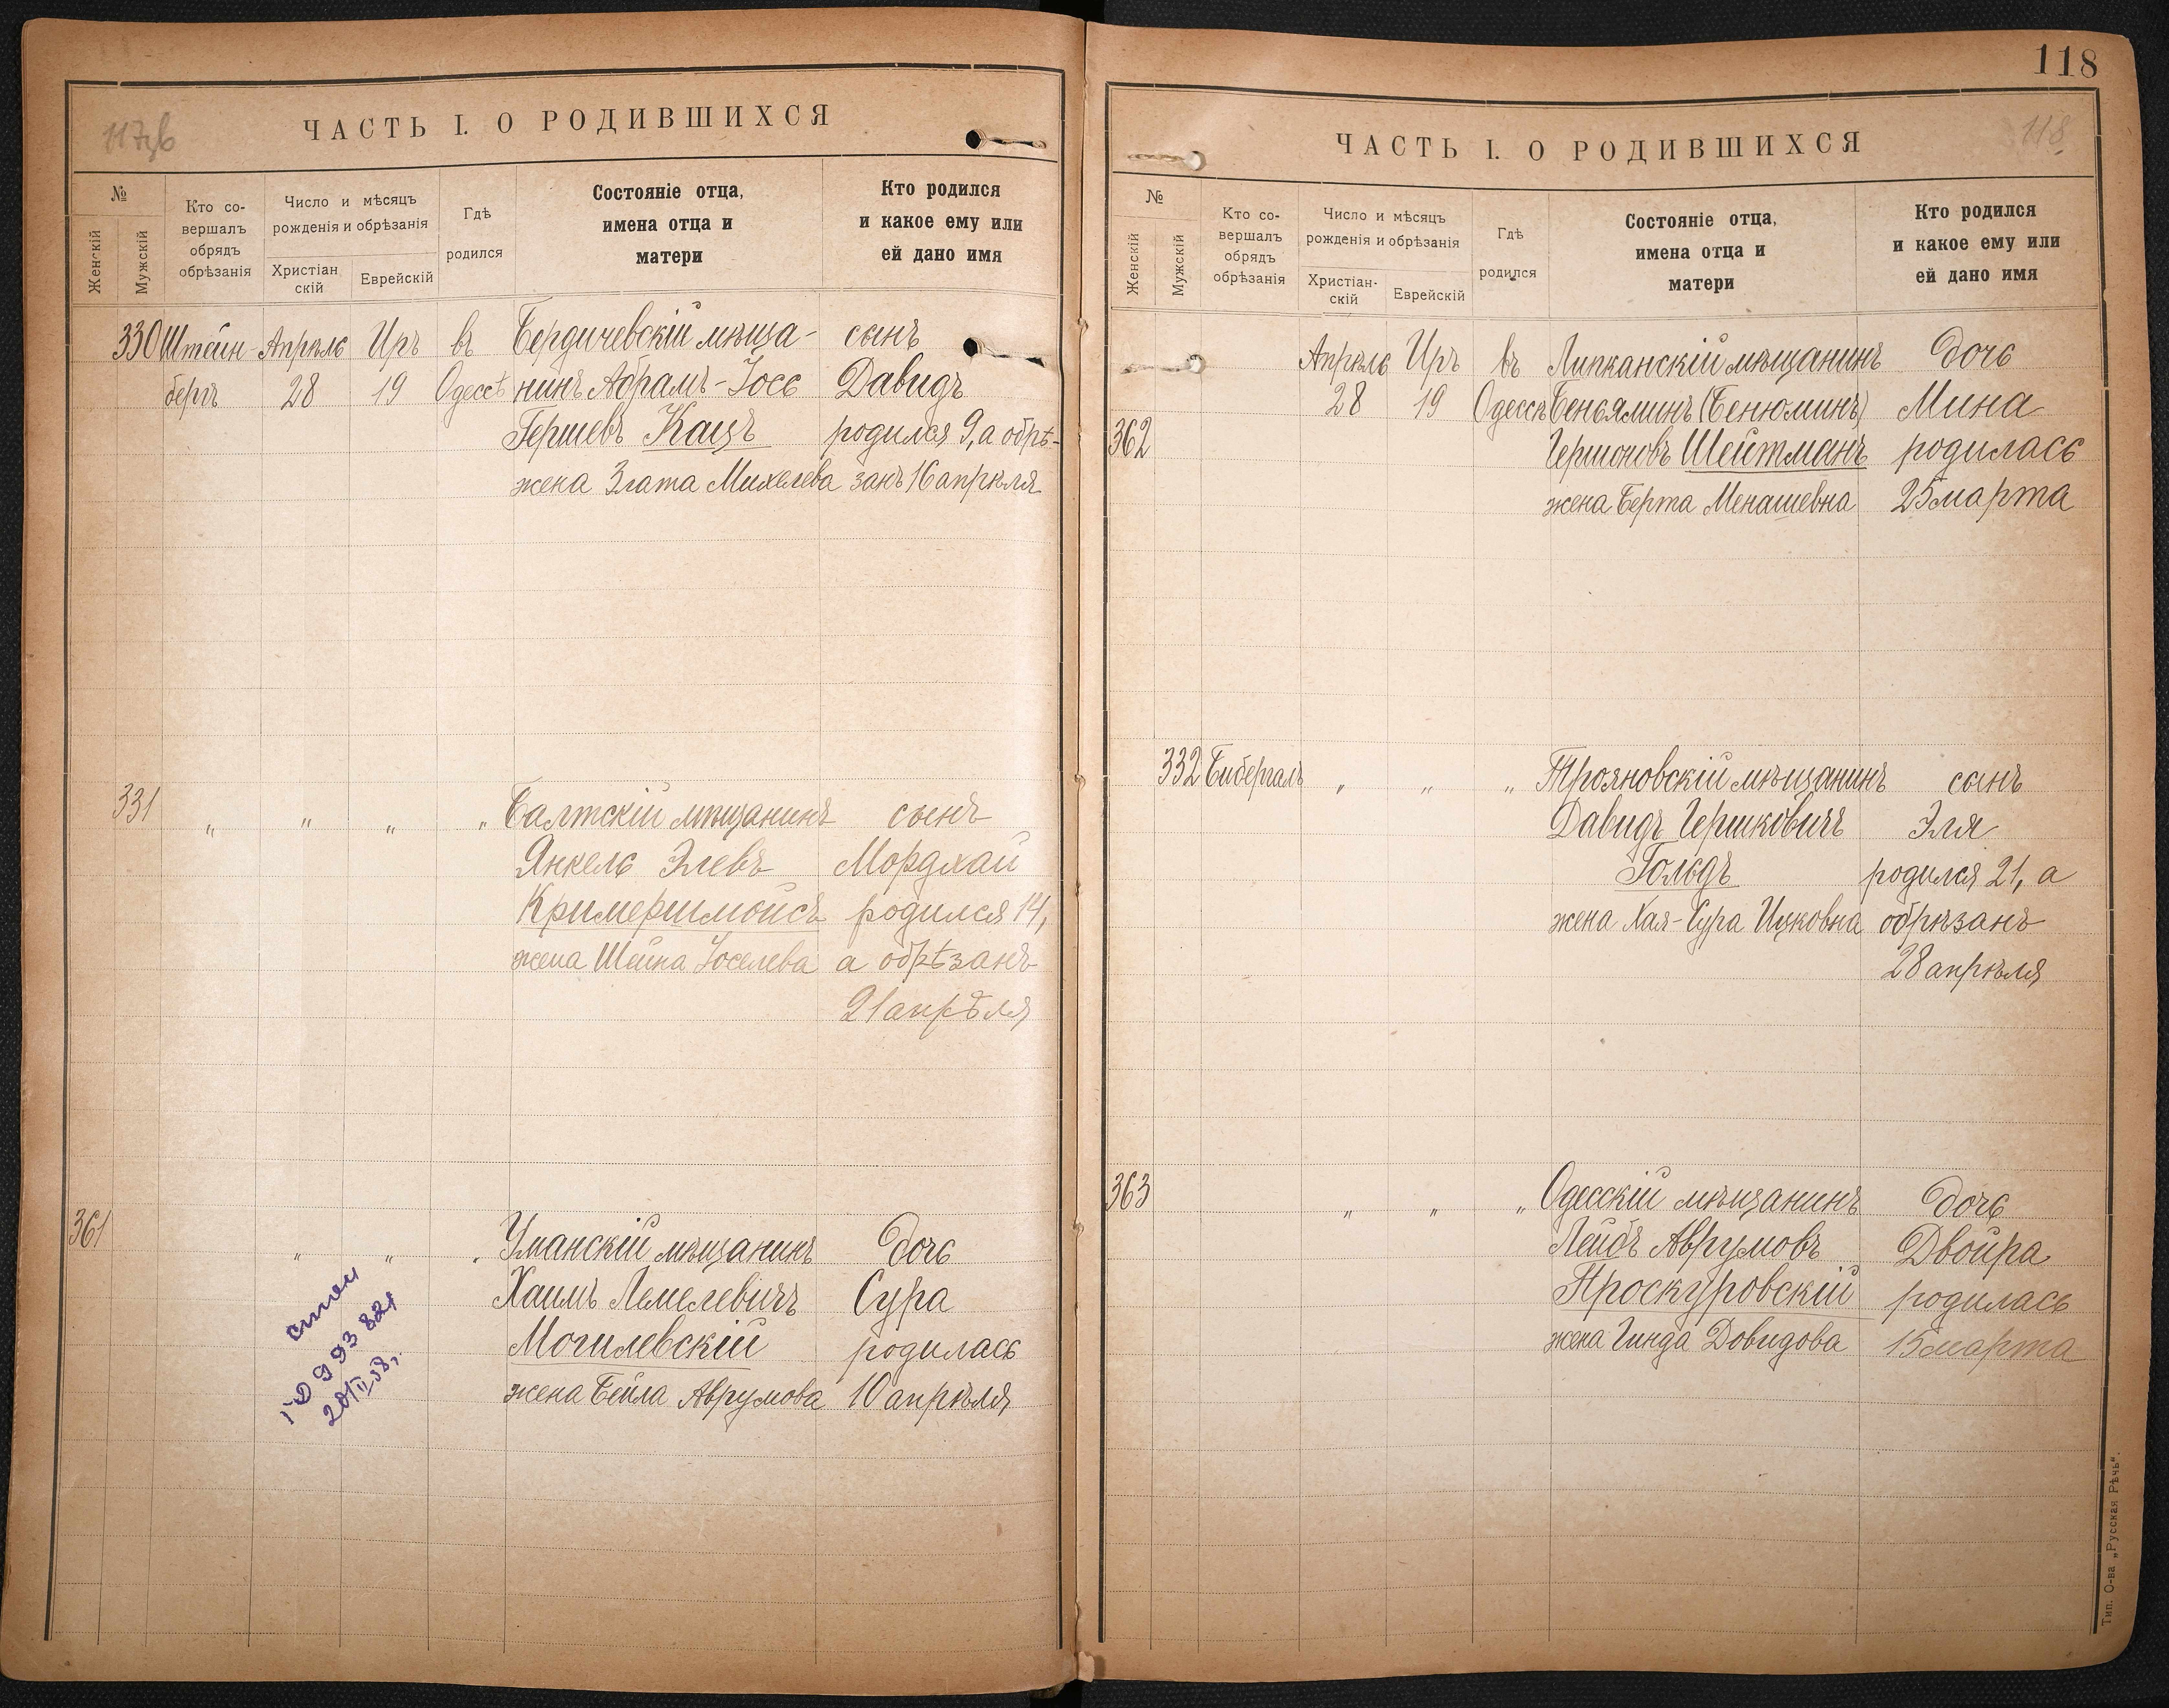 117об
ЧАСТЬ I. О РОДИВШИХСЯ
№
Женскій
Мужскій
Кто со-
вершалъ
обрядъ
обрѣзанія
Число и мѣсяцъ
рожденія и обрѣзанія
Христіан
скій
Еврейскій
Гдѣ
родился
Состояніе отца,
имена отца и
матери
Кто родился
и какое ему или
ей дано имя
330 Штейн- Апрѣль Иръ въ Бердичевскій мѣща- сынъ
бергъ 28 19 Одессѣ нинъ Абрамъ-Іось Давидъ
Гершевъ Кацъ родился 9, а обрѣ-
жена Злата Михелева занъ 16 апрѣля
331 " " " " Балтскій мѣщанинъ сынъ
Янкель Элевъ Мордхай
Кримершмойсъ родился 14,
жена Шейна Іоселева а обрѣзанъ
21 апрѣля
361 " " " Уманскій мѣщанинъ дочь
Хаимъ Лемелевичъ Сура
Могилевскій родилась
жена Бейла Аврумова 10 апрѣля
993 821
20/II 58,
118
118
ЧАСТЬ I. О РОДИВШИХСЯ
№
Женскій
Мужскій
Кто со-
вершалъ
обрядъ
обрѣзанія
Число и мѣсяцъ
рожденія и обрѣзанія
Христіан-
скій
Еврейскій
Гдѣ
родился
Состояніе отца,
имена отца и
матери
Кто родился
и какое ему или
ей дано имя
Апрѣль Иръ въ Липканскій мѣщанинъ дочь
28 19 Одессѣ Беньяминъ (Бенюминъ) Мина
362 Гершоновъ Шейтманъ родилась
жена Берта Менашевна 25 марта
332 Бибергалъ " " " Трояновскій мѣщанинъ сынъ
Давидъ Гершковичъ Эля
Гольдъ родился 21, а
жена Хая-Сура Ицковна обрѣзанъ
28 апрѣля
363 " " " Одесскій мѣщанинъ дочь
Лейбъ Аврумовъ Двойра
Проскуровскій родилась
жена Гинда Довидова 15 марта
Тип. О-ва „Русская Рѣчь".